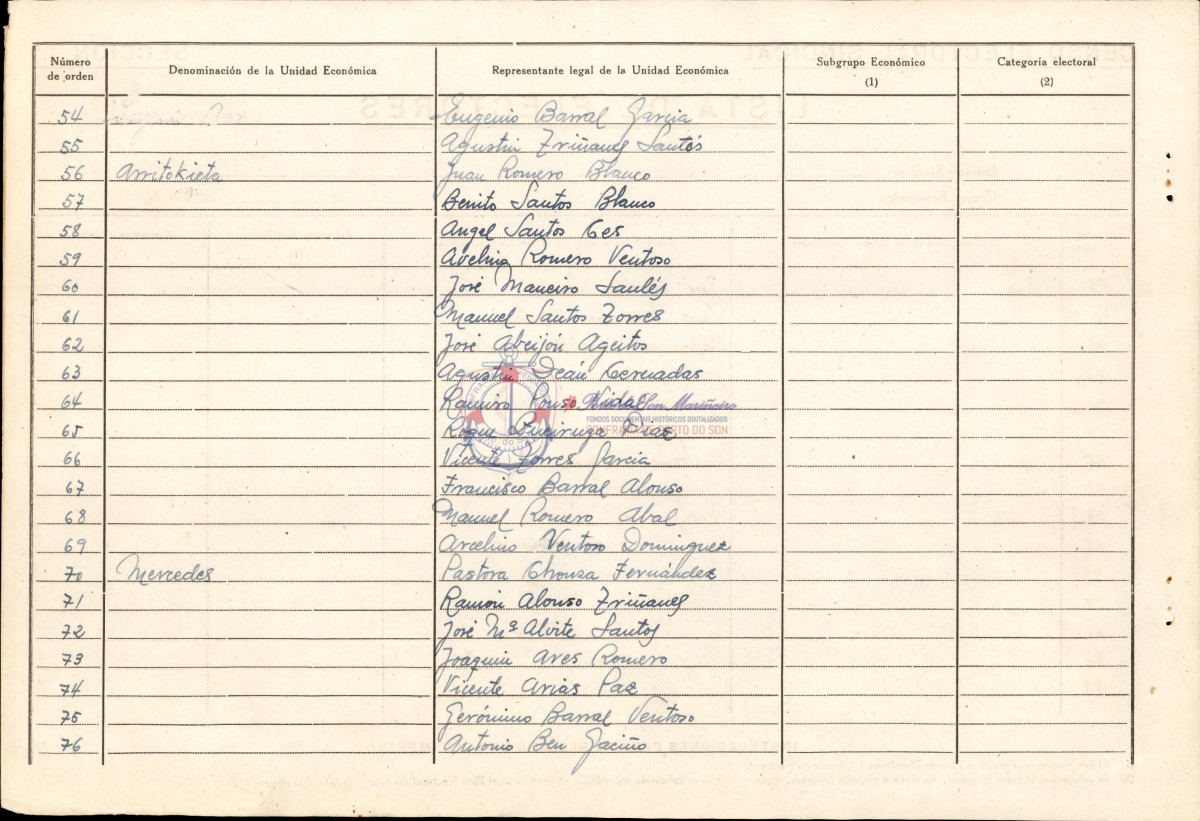 Número de orden
Denominación de la Unidad Económica
Representante legal de la Unidad Económica
Subgrupo Económico (1)
Categoría electoral (2)
54 Eugenio Barral Garcia
55 Agustin Triñanes Santos
56 Arritokieta Juan Romero Blanco
57 Benito Santos Blanco
58 Angel Santos Ces
59 Avelino Romero Ventoso
60 José Maneiro Saulés
61 Manuel Santos Torres
62 José Abeijón Ageitos
63 Agustin Deán Cernadas
64 Ramiro Vidal
65 Roque Queiruga Diaz
66 Vicente Torres Garcia
67 Francisco Barral Alonso
68 Manuel Romero Abal
69 Arcelino Ventoso Dominguez
70 Mercedes Pastora Chouza Fernández
71 Ramón Alonso Triñanes
72 José Mª Alvite Santos
73 Joaquin Ares Romero
74 Vicente Arias Paz
75 Gerónimo Barral Ventoso
76 Antonio Ben Gaciño
Son Mariñeiro
FONDOS DOCUMENTAIS HISTÓRICOS DIGITALIZADOS
CONFRARÍA PORTO DO SON